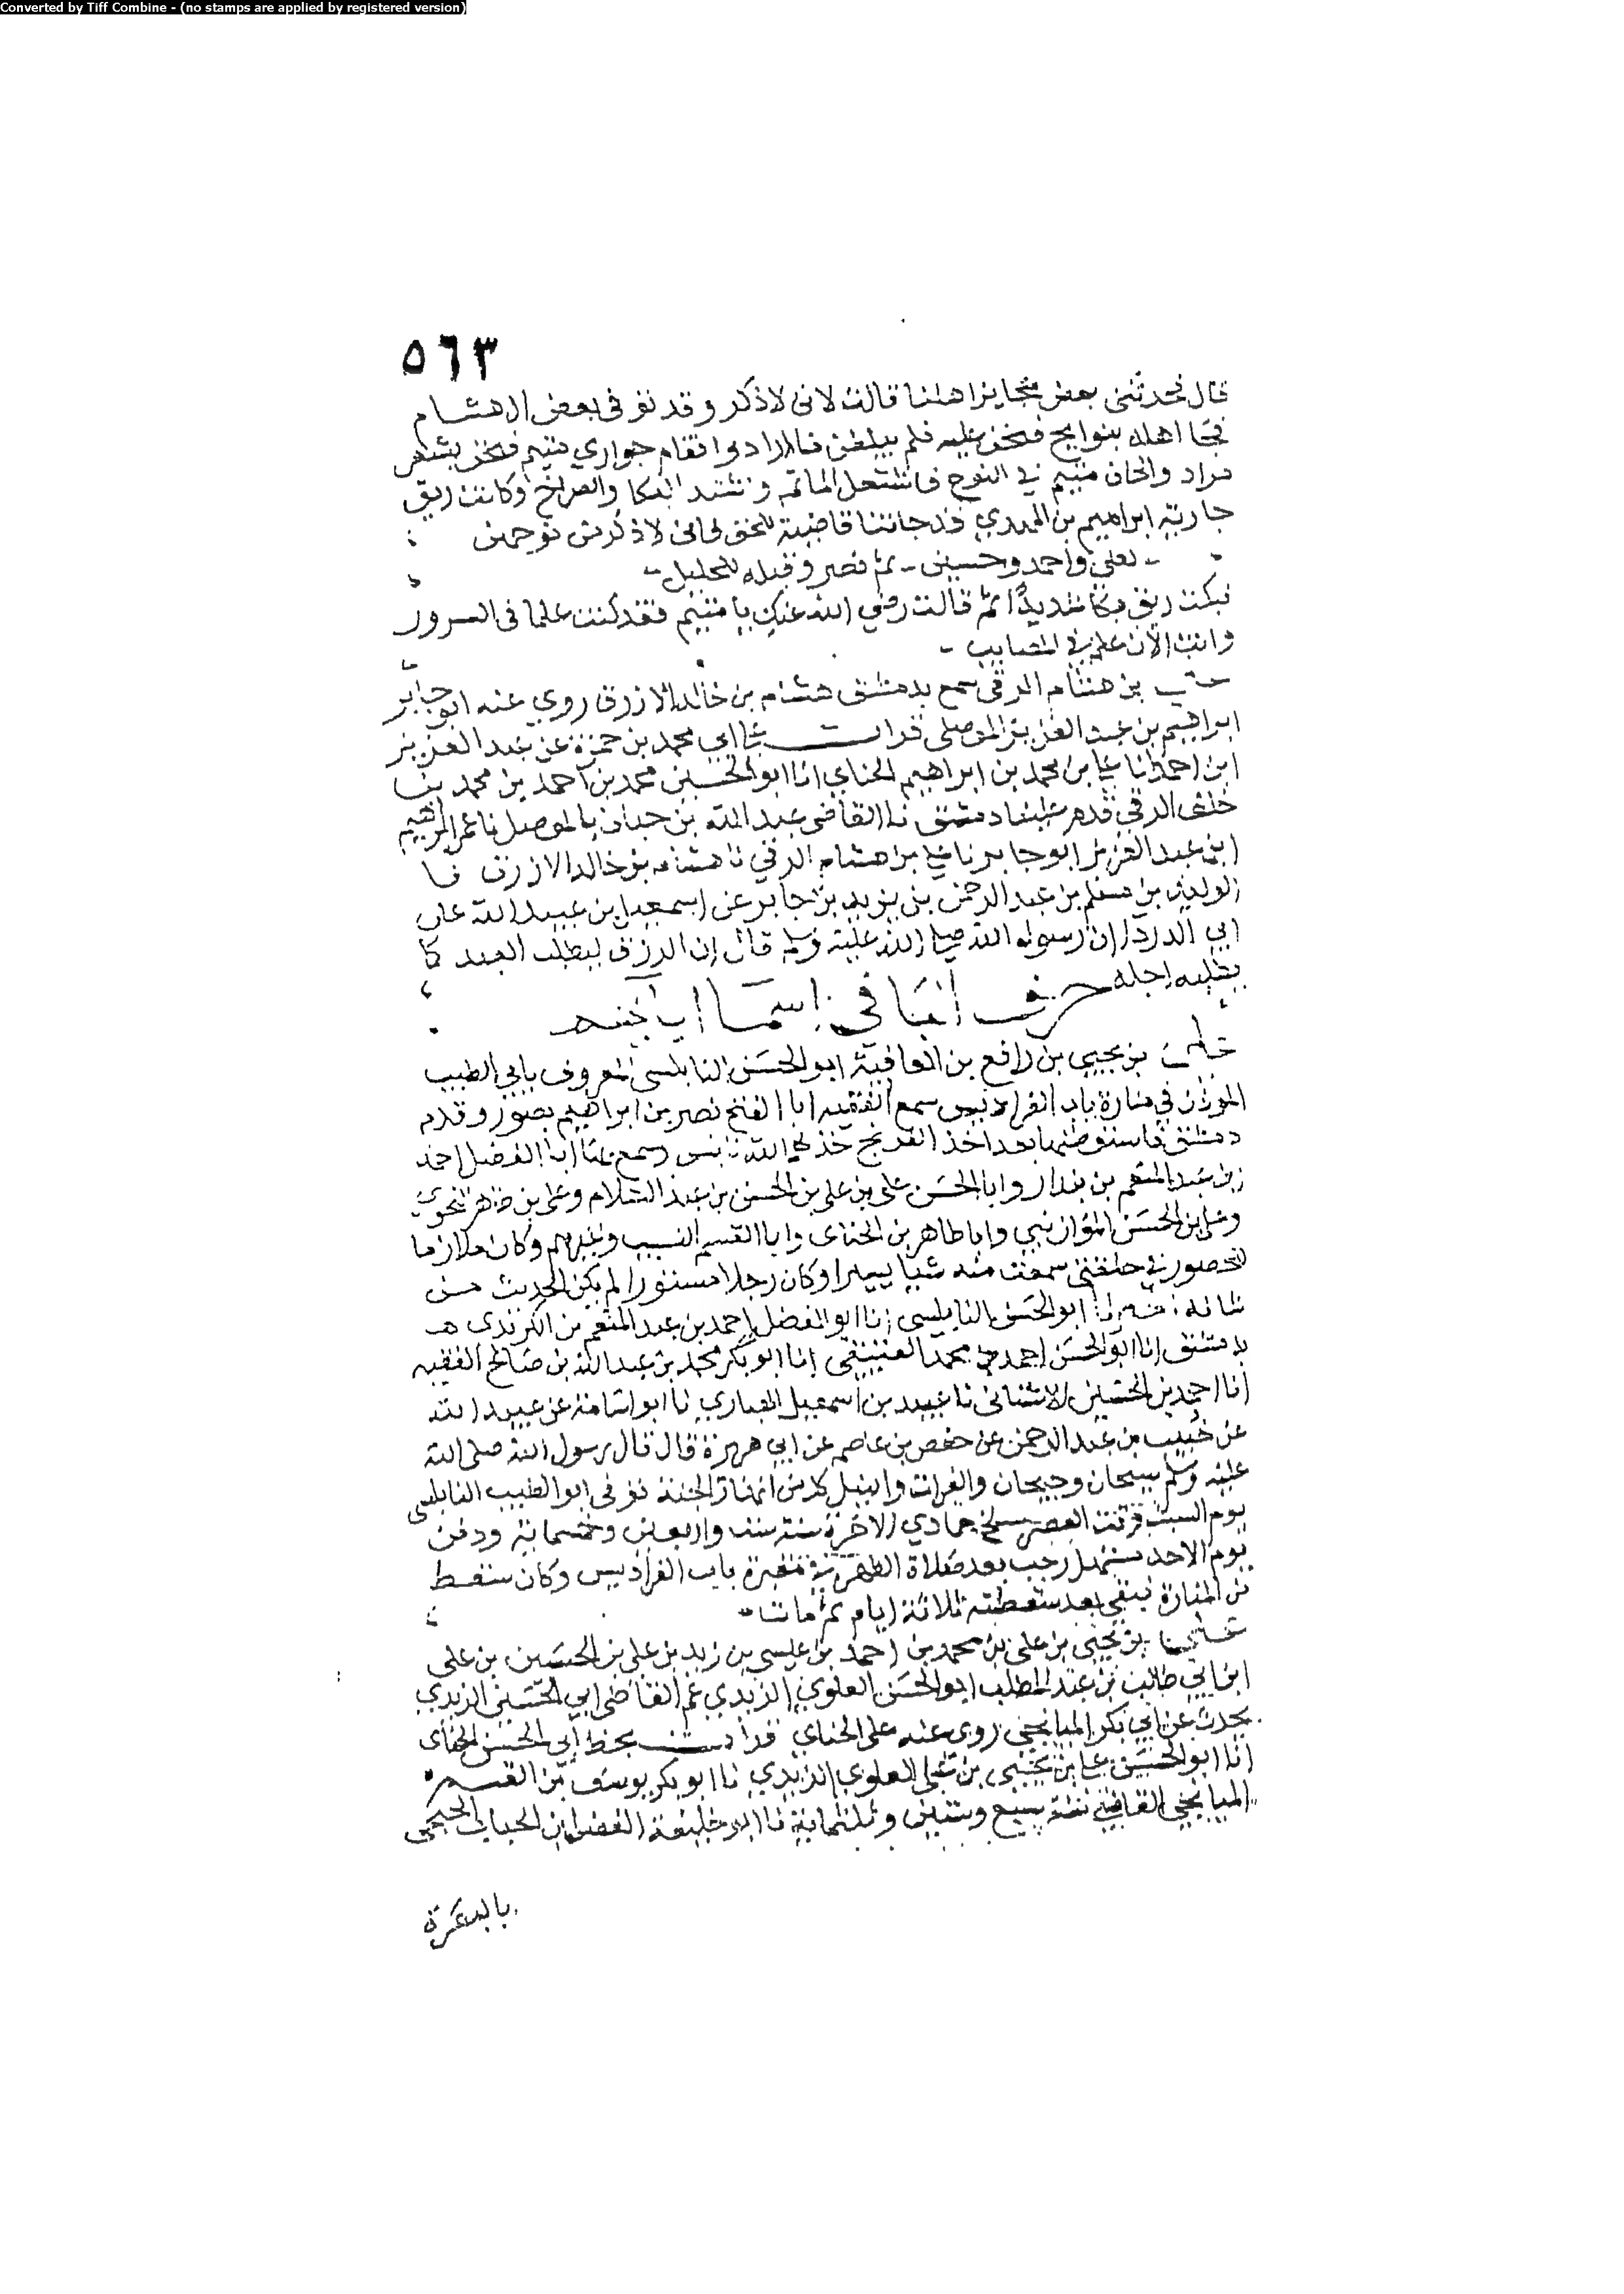 Converted by Tiff Combine - (no stamps are applied by registered version)
٥٦٣
قال فحدثني بعض عجايز اهلنا قالت لاني لاذكر وقد توفي بعض ال هشام
فجا اهله بنوايح فنحن عليه فلم يبلغن ما ارادوا فقام جواري متيم فنحن بشعر
مراد والحان متيم في النوح فاشتعل الماتم واشتد البكا والصراخ وكانت ريق
جارية ابراهيم بن المهدي قد جاتنا قاضية للحق فاني لاذكر من نوحهن
لعلي واحمد وحسين ثم نصر وقبله للخليل
فبكت ريق بكا شديدا ثم قالت رضي الله عنك يا متيم فقد كنت علما في السرور
وانت الان علم في المصايب
علي بن هشام الرقي سمع بدمشق هشام بن خالد الازرق روي عنه ابو جابر
ابراهيم بن عبد العزيز الموصلي قرات على ابي محمد بن حمزة عن عبد العزيز
ابن احمد انا علي بن محمد بن ابراهيم الحناي انا ابو الحسين محمد بن احمد بن محمد بن
خلف الرقي قدم علينا دمشق نا القاضي عبد الله بن حيان بالموصل نا ابراهيم
ابن عبد العزيز ابو جابر نا علي بن هشام الرقي نا هشام بن خالد الازرق نا
الوليد بن مسلم بن عبد الرحمن بن يزيد بن جابر عن اسمعيل بن عبيد الله عن
ابي الدردا ان رسول الله صلى الله عليه وسلم قال ان الرزق ليطلب العبد كما
يطلبه اجله حرف اليا في اسما ابايهم
علي بن يحيى بن رافع بن العافية ابو الحسن النابلسي المعروف بابي الطيب
الموذن في منارة باب الفراديس سمع الفقيه ابا الفتح نصر بن ابراهيم بصور وقدم
دمشق فاستوطنها بعد اخذ الفرنج خذلهم الله نابلس وسمع بها ابا الفضل احمد
بن عبد المنعم بن بندار وابا الحسن علي بن علي بن الحسن بن عبد السلام وعلي بن طاهر النحوي
وعلي بن الحسن الموازيني وابا طاهر بن الحناي وابا القسم النسيب وغيرهم وكان ملازما
للحضور في حلقتي سمعت منه شيا يسيرا وكان رجلا مستورا لم يكن الحديث من
شانه انا ابو الحسن النابلسي انا ابو الفضل احمد بن عبد المنعم بن الكرندي
بدمشق انا ابو الحسن احمد بن محمد العتيقي انا ابو بكر محمد بن عبد الله بن صالح الفقيه
انا احمد بن الحسين الاشناني نا عبيد بن اسمعيل الهباري نا ابو اسامة عن عبيد الله
عن خبيب بن عبد الرحمن عن حفص بن عاصم عن ابي هريرة قال قال رسول الله صلى الله
عليه وسلم سيحان وجيحان والفرات والنيل كل من انهار الجنة توفي ابو الطيب النابلسي
يوم السبت وقت العصر سلخ جمادي الاخرة سنة ست واربعين وخمسماية ودفن
يوم الاحد مستهل رجب بعد صلاة الظهر في مقبرة باب الفراديس وكان سقط
من المنارة فبقي بعد سقطته ثلاثة ايام ثم مات
علي بن يحيى بن علي بن محمد بن احمد بن عيسى بن زيد بن علي بن الحسين بن علي
ابن ابي طالب بن عبد المطلب ابو الحسن العلوي الزيدي عم القاضي ابي الحسين الزيدي
يحدث عن ابي بكر الميانجي روى عنه علي الحناي قرات بخط ابي الحسن الحناي
انا ابو الحسن علي بن يحيى بن علي العلوي الزيدي نا ابو بكر يوسف بن القسم
الميانجي القاضي سنة سبع وستين وثلثماية نا ابو خليفة الفضل بن الحباب الجمحي
بالبصرة